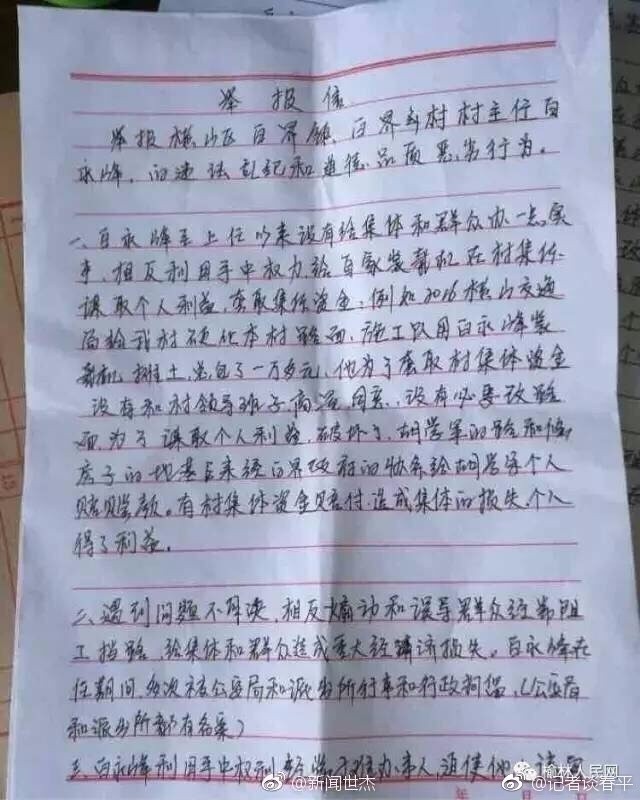 举报信
举报横山区白界镇、白界乡村村主任白
永峰，的违法乱纪和道德品质恶劣行为。
一、白永峰至上任以来没有给集体和群众办一点实
事，相反利用手中权力，给自家装载机在村集体
谋取个人利益，套取集体资金，例如2016横山交通
局给我村硬化本村路面，施工队用白永峰装
载机推土，总包了一万多元，他为了套取村集体资金
没有和村领导班子商议同意，没有必要改路
面，为了谋取个人利益，破坏了，胡学军的路和修
房子的地基后来经白界政府的协条给胡学军个人
赔款。有村集体资金赔付，造成集体的损失，个人
得了利益。
二、遇到问题不解决，相反煽动和误导群众经常阻
工挡路，给集体和群众造成重大经济损失。白永峰在
任期间，多次被公安局和派出所行事和行政拘留，（公安局
和派出所都有备案）
三、白永峰利用手中权利
年 月 日
榆林人民网
@新闻世杰
@记者谈春平